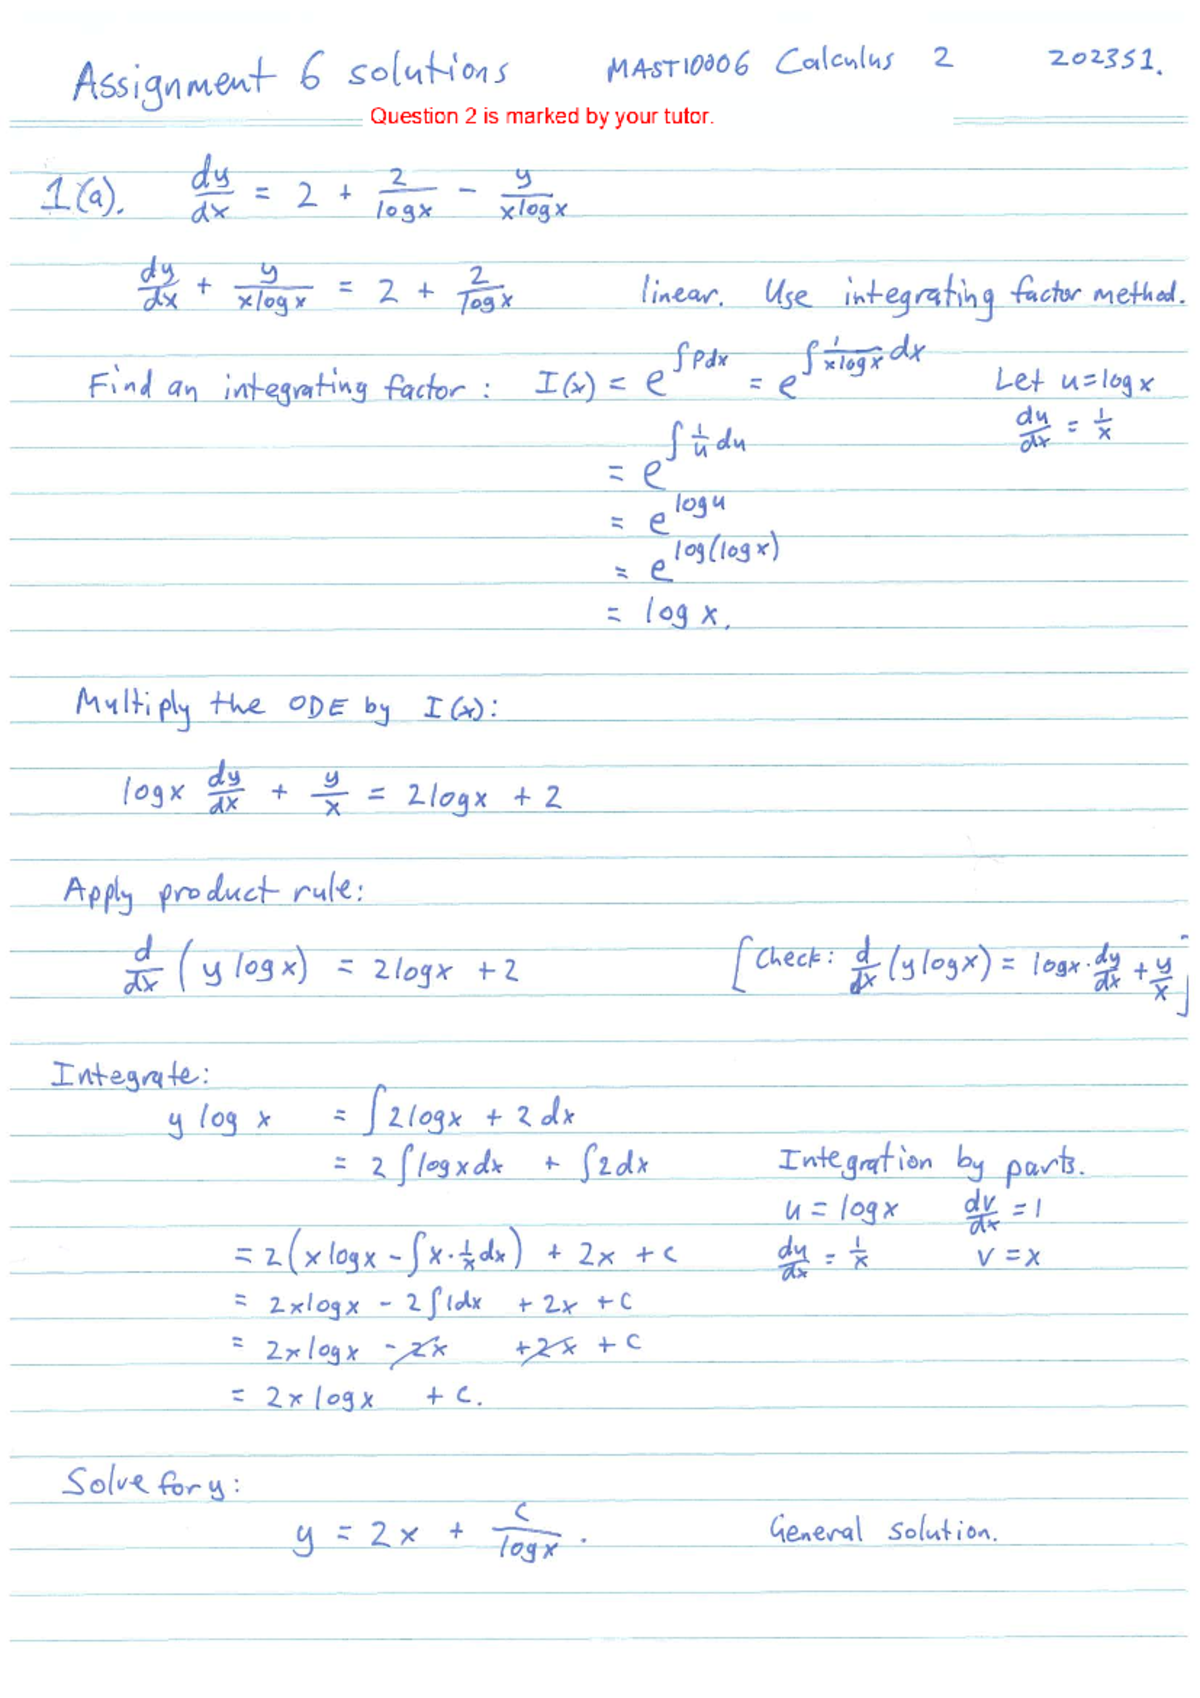 Assignment 6 solutions MAST10006 Calculus 2 2023S1.
Question 2 is marked by your tutor.
1(a). dy/dx = 2 + 2/logx - y/xlogx
dy/dx + y/xlogx = 2 + 2/logx linear. Use integrating factor method.
Find an integrating factor : I(x) = e^∫Pdx = e^∫1/xlogx dx Let u=logx
= e^∫1/u du du/dx = 1/x
= e^logu
= e^log(logx)
= log x.
Multiply the ODE by I(x):
logx dy/dx + y/x = 2logx + 2
Apply product rule:
d/dx (y logx) = 2logx +2 [Check: d/dx (ylogx) = logx·dy/dx + y/x]
Integrate:
y log x = ∫2logx + 2 dx
= 2∫logxdx + ∫2dx Integration by parts.
u = logx dv/dx = 1
= 2(xlogx - ∫x·1/x dx) + 2x + c du/dx = 1/x v = x
= 2xlogx - 2∫1dx + 2x + c
= 2xlogx - 2x + 2x + c
= 2xlogx + c.
Solve for y:
y = 2x + c/logx. General solution.